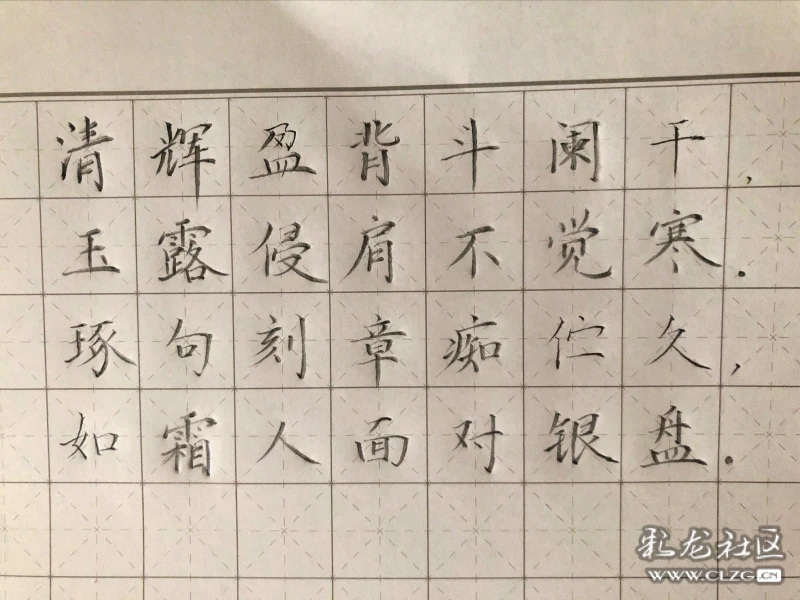 清辉盈背斗阑干，
玉露侵肩不觉寒．
琢句刻章痴伫久，
如霜人面对银盘．
彩龙社区
WWW.CLZG.CN